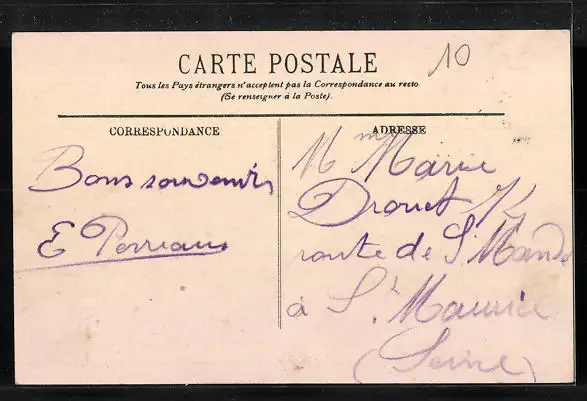 CARTE POSTALE
10
Tous les Pays étrangers n'acceptent pas la Correspondance au recto
(Se renseigner à la Poste).
CORRESPONDANCE
Bons souvenirs
E Perreau
ADRESSE
Mme Marie
Drouet
route de St Mandé
à St Maurice
(Seine)